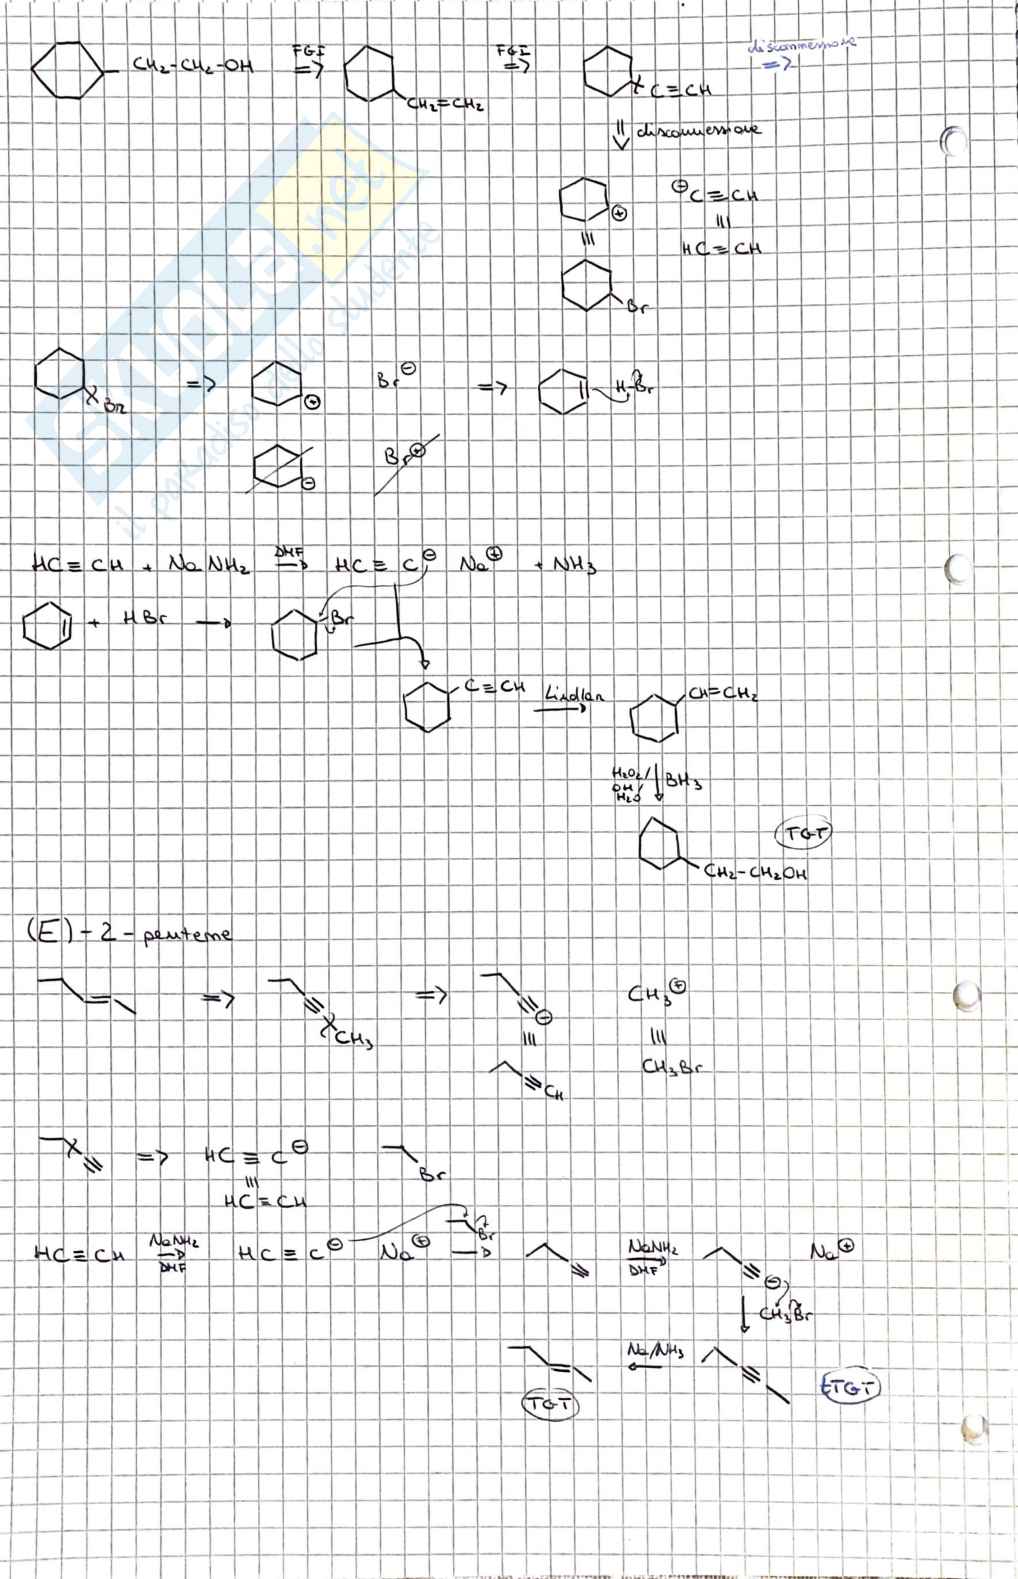 CH₂-CH₂-OH FGI => CH₂=CH₂ FGI => C≡CH disconnessione =>
disconnessione
⊕ ⊖C≡CH
≡ ≡
HC≡CH
Br
Br => ⊕ Br⊖ => H-Br
⊖ Br⊕
HC≡CH + NaNH₂ DMF → HC≡C⊖ Na⊕ + NH₃
+ HBr → Br
C≡CH Lindlar → CH=CH₂
H₂O₂/ OH/ H₂O BH₃
TGT
CH₂-CH₂OH
(E)-2-pentene
=> CH₃ => ⊖ CH₃⊕
≡ ≡
CH CH₃Br
=> HC≡C⊖ Br
≡
HC≡CH
HC≡CH NaNH₂ DMF → HC≡C⊖ Na⊕ Br → NaNH₂ DMF → ⊖ Na⊕
CH₃Br
Na/NH₃ ←
TGT TGT
skuola.net
il paradiso dello studente